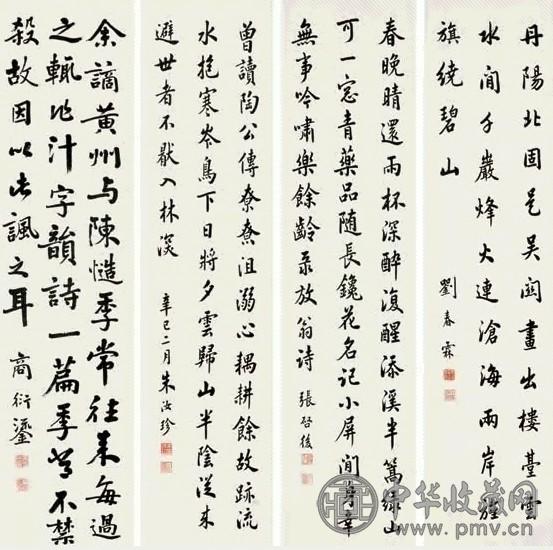 丹陽北固是吳関畫出樓臺雲
水間千巖烽火連滄海兩岸旌
旗繞碧山
劉春霖
春晚晴還雨杯深醉復醒添溪半篙綠山
可一窓青藥品随長鑱花名記小屏閒身幸
無事吟嘯樂餘齡 录放翁詩 張啓後
曾讀陶公傳寮寮沮溺心耦耕餘故跡流
水抱寒岑鳥下日將夕雲歸山半陰從来
避世者不猒入林深 辛巳二月朱汝珍
余謫黃州与陳慥季常往来每過
之輒作汁字韻詩一篇季常不禁
殺故因以此諷之耳 商衍鎏
中华收藏网
www.pmv.cn